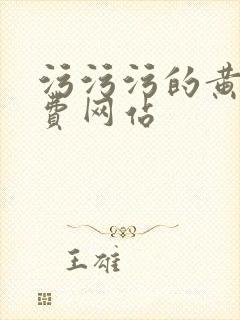 污污污的黄
费网站
王雄